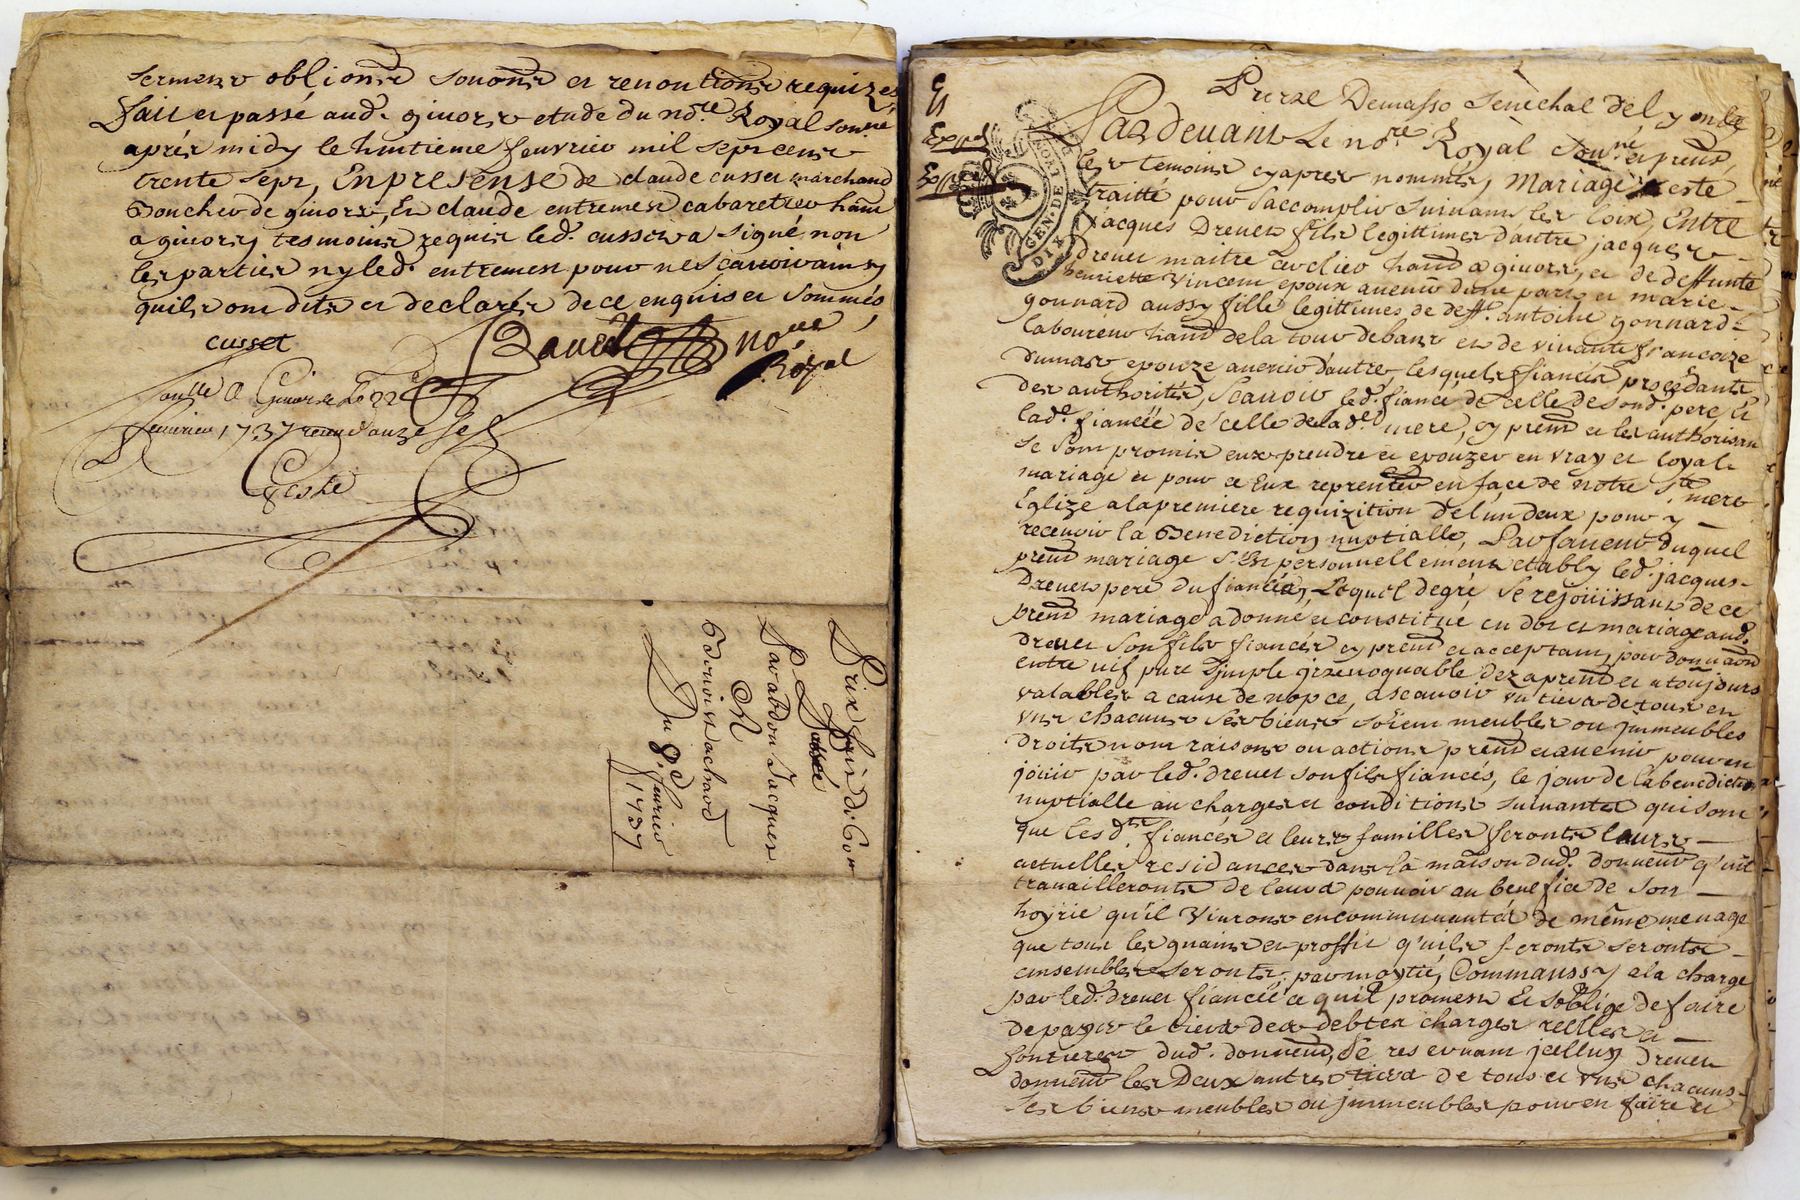 serment oblions soūons et renontions requizes
fait et passé aud. givors etude du nore. Royal sonné
aprés midy le huitieme fevrier mil sept cent
trente sept, En presense de claude cusset marchand
Boucher de givors, Et claude entremen cabaretier hāut
a givors, tesmoins requis led. cusset a signé non
les parties ny led. entremen pour ne sçavoir ainsy
quils ont dits et declarés de ce enquis et sommés
cusset
nore
Royal
a Givors le 22e
fevrier 1737
Prix fait de
Passé
Par abdon Jacques
A
Du 8e. fevrier
1737
Pierre Demasso Senechal de Lyon
Pardevant Le nore Royal Soūné et preūs
les temoins cyapres nommés, Mariage a esté
traitté pour S'accomplir Suivant les loix, Entre
Jacques Drevet fils legittimes d'autre jacques
drevet maitre hānt a givors, et de deffunte
henriette Vincent epoux avenir d'une part, et marie
gonnard aussy fille legittimes de defft. antoine gonnard
laboureur hānt de la tour de bans et de vivante francoize
dumas epouze avenir d'autre, lesquels fiancés procédants
des authorités, Scavoir led. fiancé de celle de sond. pere, et
lad. fiancée de celle de lad. mere, cy preūt et les authorisan
se sont promis eux prendre et epouzer en vray et loyal
mariage et pour ce Eux reprenter en façe de notre Ste mere
Eglize a la premiere requizition de l'un deux pour y
recevoir la Benediction nuptialle, En faveur duquel
preūt mariage s'est personnellement etably led. jacques
Drevet pere du fiancés, Lequel de gré Se rejoüissant de ce
preūt mariage a donné et constitué en dot et mariage aud.
drevet son fils fiancés cy preūt et acceptant, par donnaōn
entre vif pure Simple jrrevoquable dez aprēnt et a toujours
valables a cause de nopce, a scavoir un tiers de tous en
uns chacuns Ses biens soient meubles ou jmmeubles
droits nom raisons ou actions prēnt et avenir pour en
joüir par led. drevet son fils fiancés, le jour de la benediction
nuptialle au charges et conditions suivantes qui sont
que les dts fiancés et leurs familles feronts leurs
actuelles residances dans la maison dud. donneur qu'ils
travailleronts de leurs pouvoir au benefice de son
hoyrie qu'il vivrons en communauté de même menage
que tous les guains et proffit qu'ils feronts seronts
ensembles seronts par moytié, Comm'aussy a la charge
par led. drevet fiancée ce qu'il promest Et soblige de faire
de payer le tiers des debtes charges reelles et
foncieres dud. donneur, Se reservant jcelluy Drevet
donneur les Deux autres tiers de tous et uns chacuns
Ses biens meubles ou jmmeubles pour en faire et